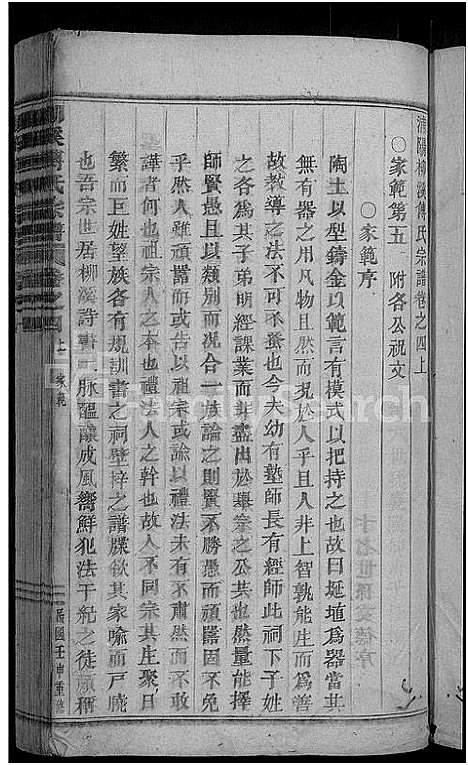 清陽柳溪傅氏宗譜卷之四上
〇家範第五　附各公祝文
〇家範序
陶土以型鑄金以範言有模式以把持之也故曰埏埴爲器當其
無有器之用凡物且然而况於人乎且人非上智孰能生而爲善
故教導之法不可不亟也今夫幼有塾師長有經師此祠下子姓
之各爲其子弟明經課業而非盡出於舉業之公共也然量能擇
師賢愚且以類別而况合一族論之則賢不勝愚而頑嚚固不免
乎然人雖頑嚚而告以祖宗或諭以禮法未有不肅然而不
譁者何也祖宗人之本也禮法人之幹也故人不同宗其生聚日
繁而巨姓望族各有規訓書之祠壁梓之譜牒欲其家喻而戶曉
也吾宗世居柳溪詩書一脉醞釀成風嚮鮮犯法干紀之徒頗稱
柳溪傅氏宗譜
卷之四
上
家範
民國壬申重修
FamilySearch